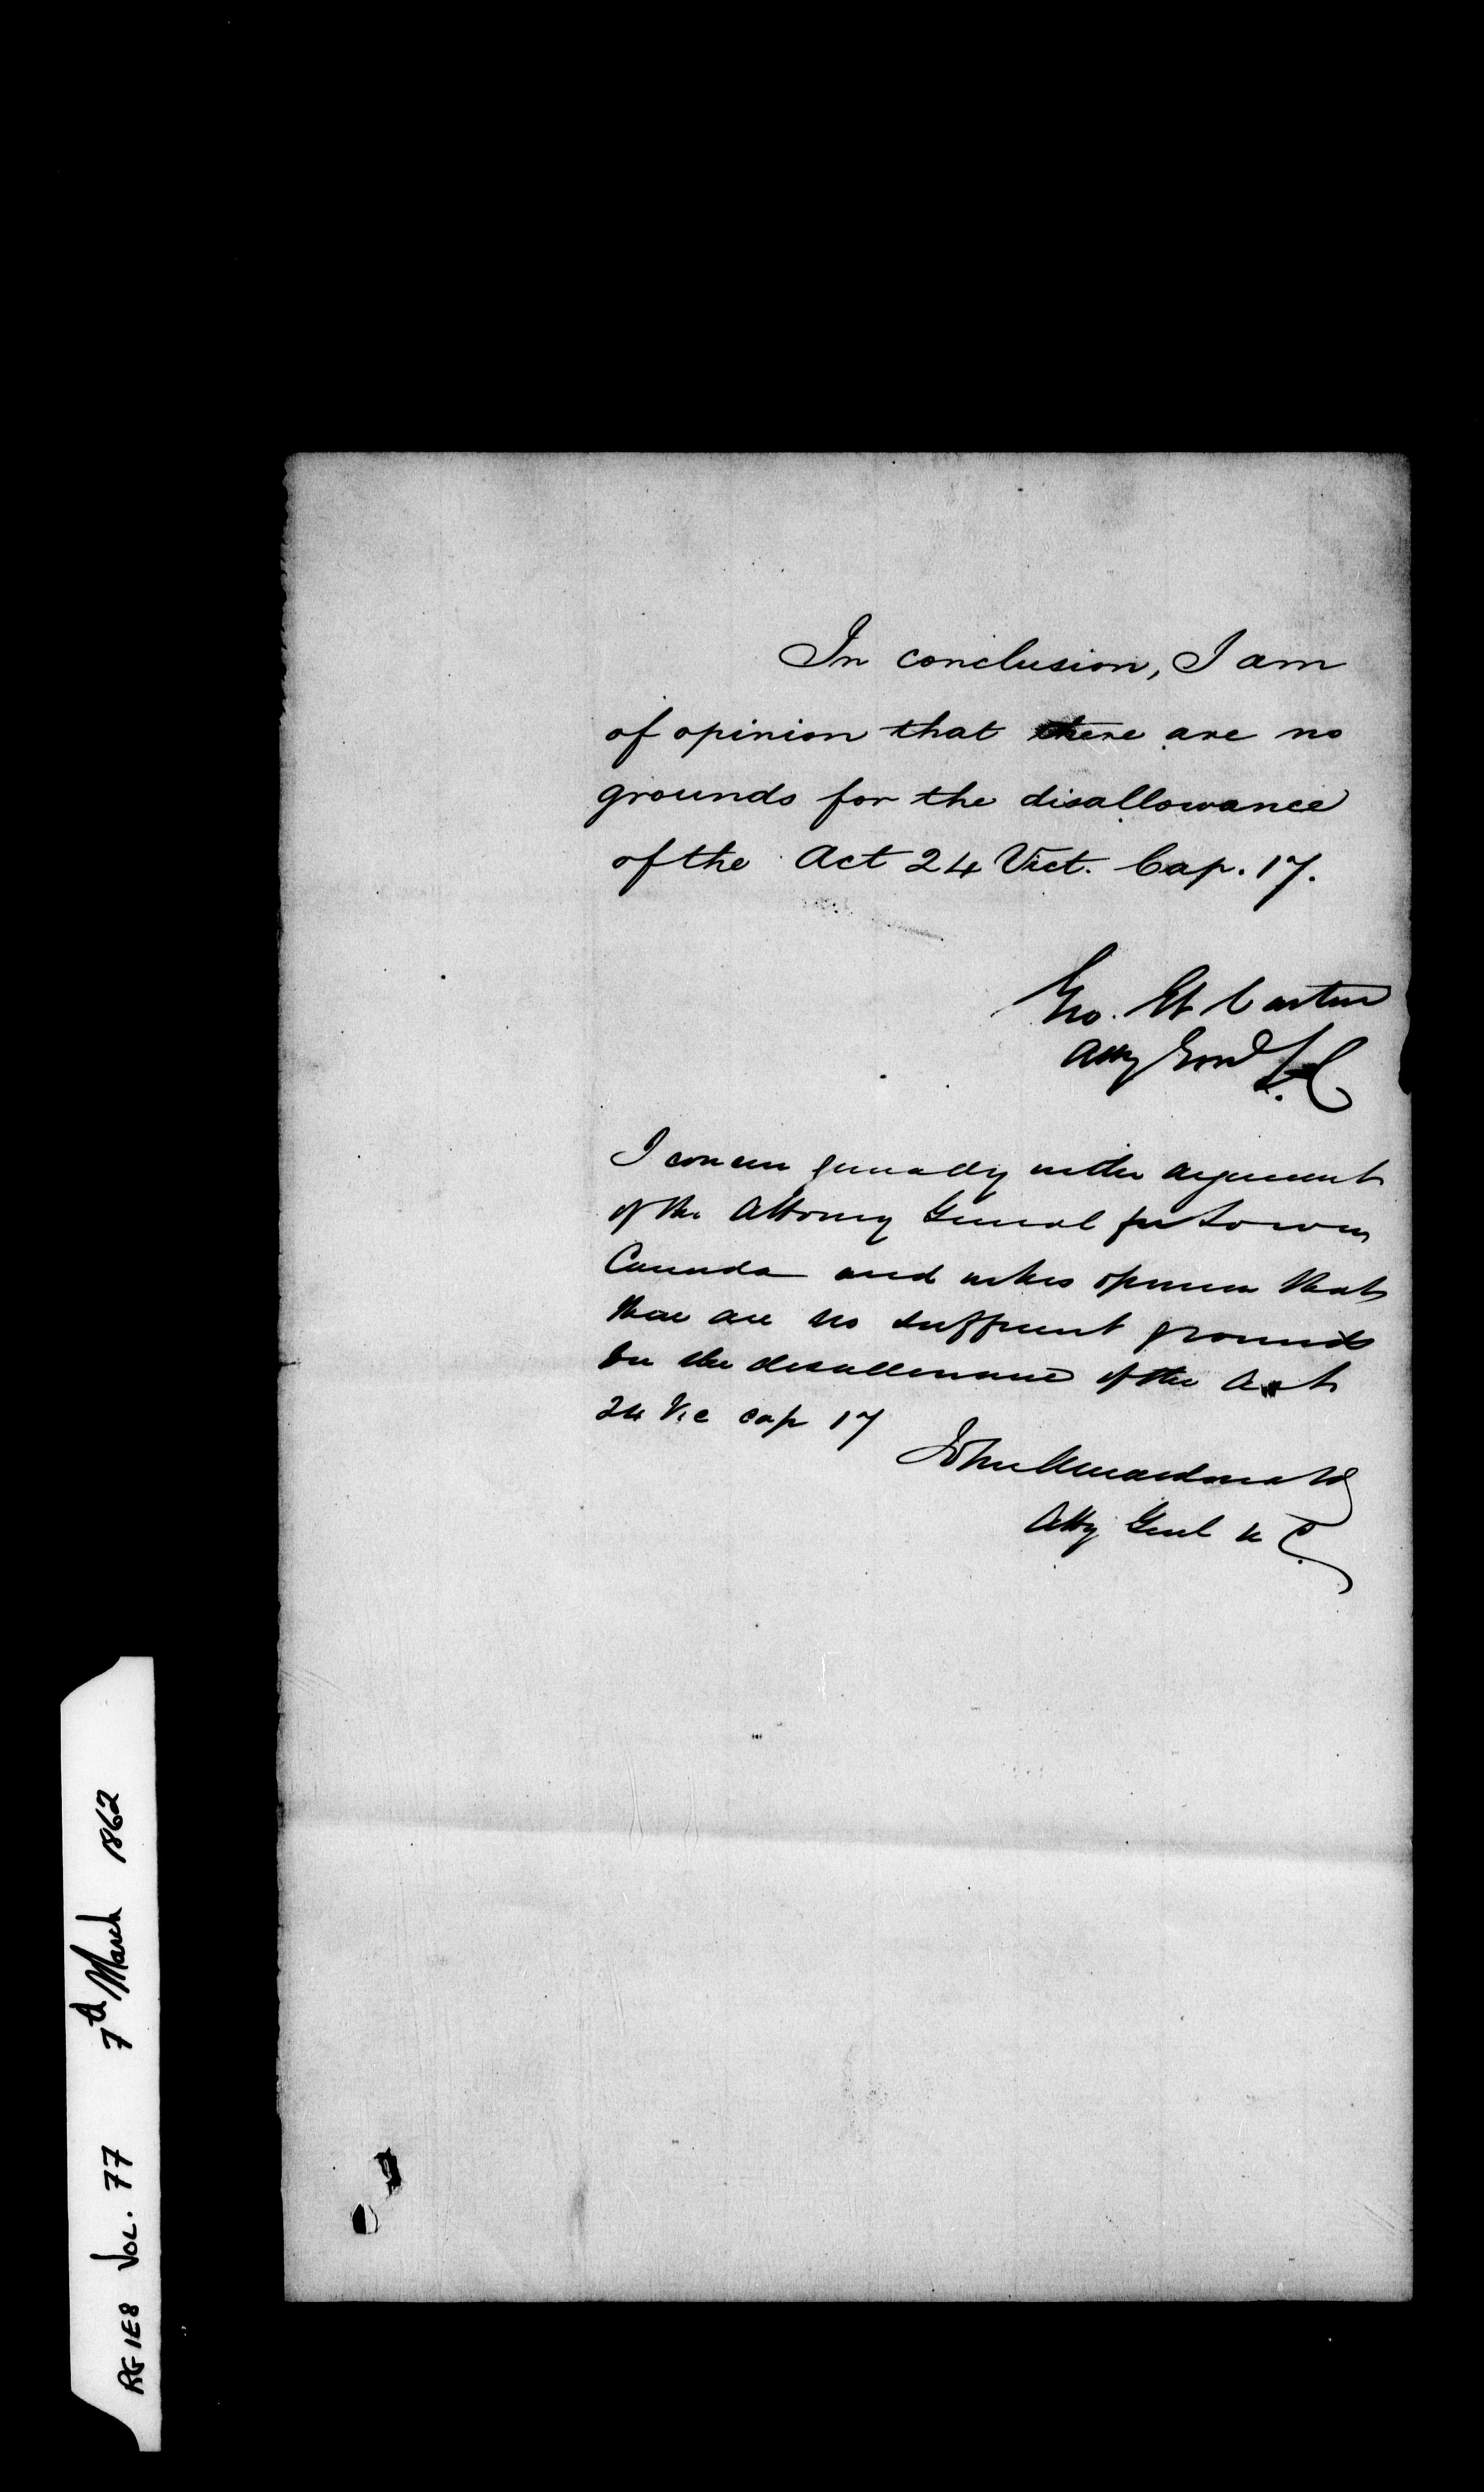 In conclusion, I am
of opinion that there are no
grounds for the disallowance
of the Act 24 Vict. Cap. 17.
Geo. Et. Cartier
Atty Genl L.C
I concur generally in the argument
of the Attorney General for Lower
Canada and in his opinion that
there are no sufficient grounds
for the disallowance of the Act
24 Vic cap 17
John A Macdonald
Atty Genl U C.
RG 1E8 VOL. 77 7th March 1862